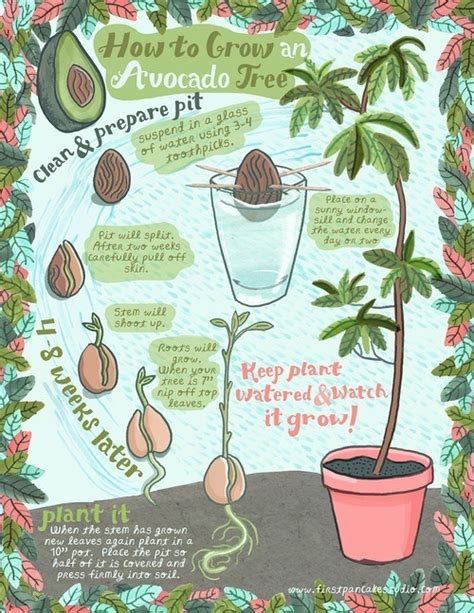 How to Grow an
Avocado Tree
Clean & prepare pit
suspend in a glass
of water using 3-4
toothpicks.
Place on a
sunny window-
sill and change
the water every
day or two
Pit will split.
After two weeks
carefully pull off
skin.
Stem will
shoot up.
Roots will
grow.
When your
tree is 7"
nip off top
leaves.
4-8 weeks later
Keep plant
watered & watch
it grow!
plant it
When the stem has grown
new leaves again plant in a
10" pot. Place the pit so
half of it is covered and
press firmly into soil.
www.firstpancakestudio.com